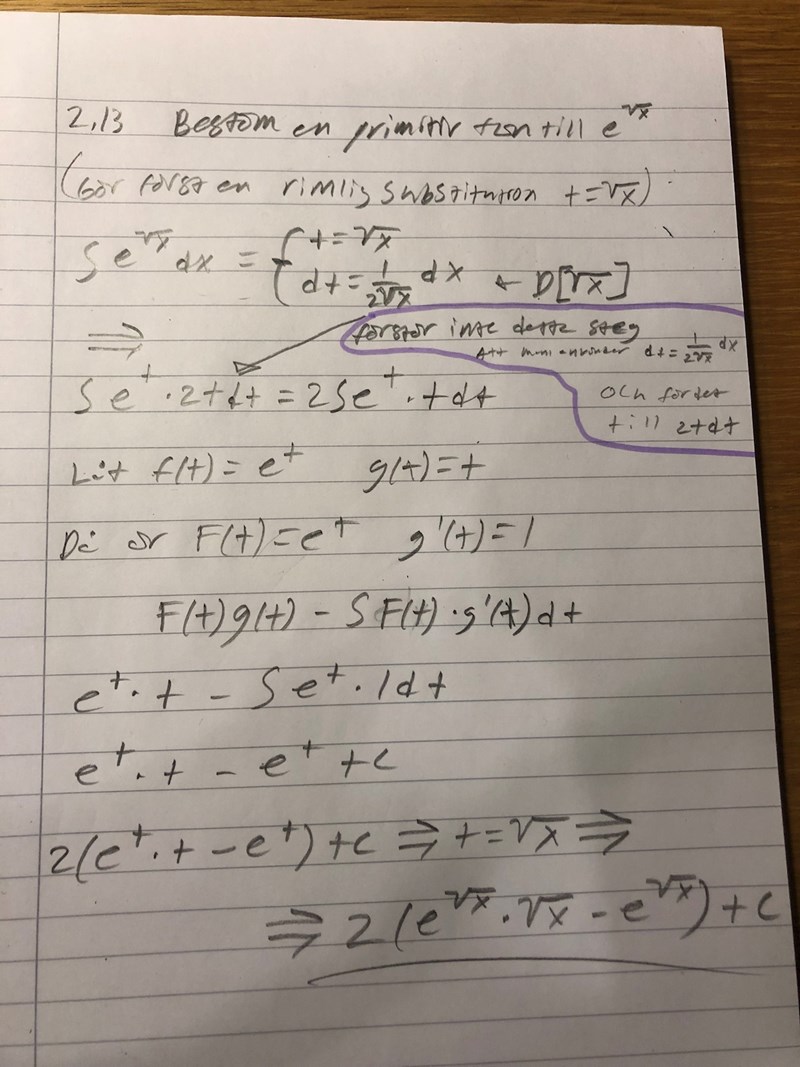 2,13 Bestöm en primitiv fkn till e^√x
(Gör först en rimlig substitution t=√x)
∫e^√x dx = { t=√x
dt = 1/(2√x) dx ← D[√x]
⇒
förstår inte detta steg
Att man använder dt = 1/(2√x) dx
och får det
till 2tdt
∫e^t · 2tdt = 2∫e^t · tdt
Låt f(t) = e^t g(t) = t
Då är F(t) = e^t g'(t) = 1
F(t)g(t) - ∫F(t)·g'(t)dt
e^t · t - ∫e^t · 1dt
e^t · t - e^t + c
2(e^t · t - e^t) + c ⇒ t=√x ⇒
⇒ 2(e^√x · √x - e^√x) + c